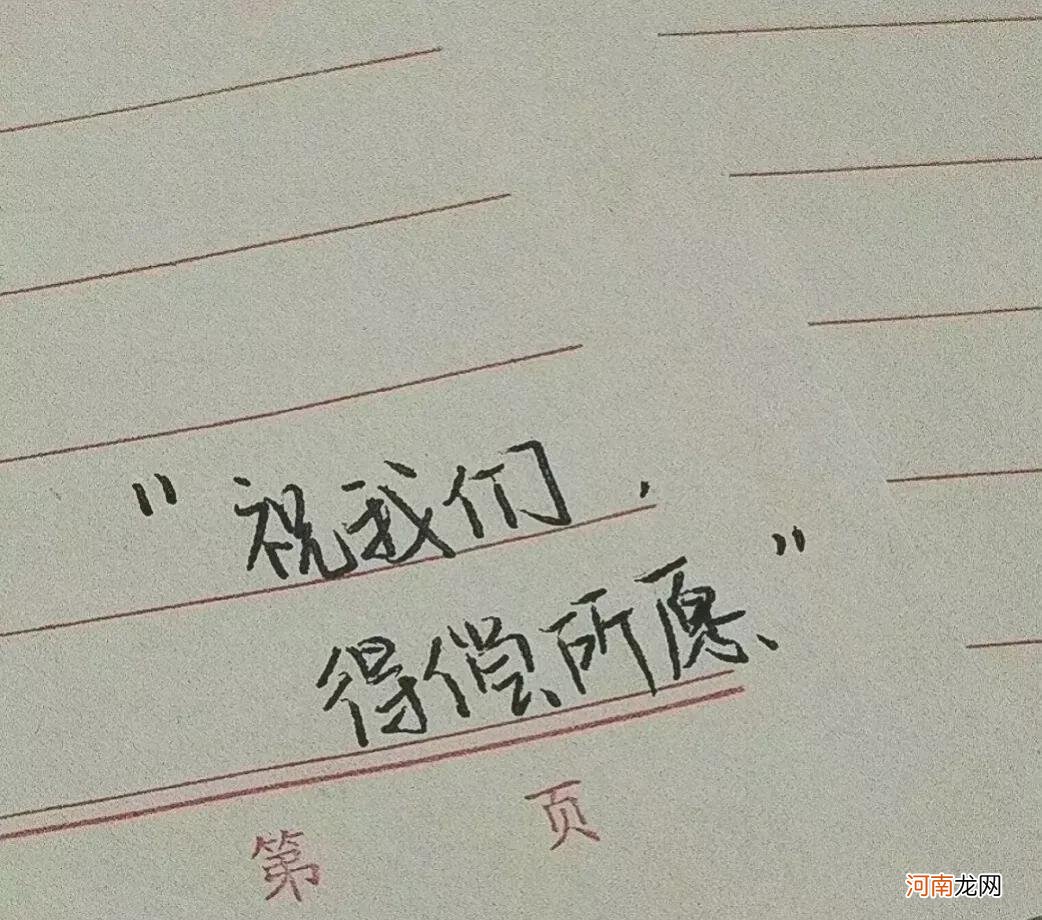 “祝我们，
得偿所愿”
第 页
河南龙网